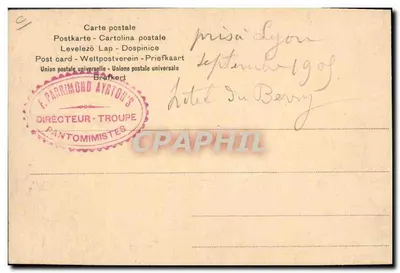 Carte postale
Postkarte - Cartolina postale
Levelezö Lap - Dopisnice
Post card - Weltpostverein - Briefkaart
Union postale universelle - Unione postale universale
Brefkort
A. PARRIMOND AYRTON'S
DIRECTEUR - TROUPE
PANTOMIMISTES
pris à Lyon
septembre 1905
Hotel du Berry
CPARAMA.COM